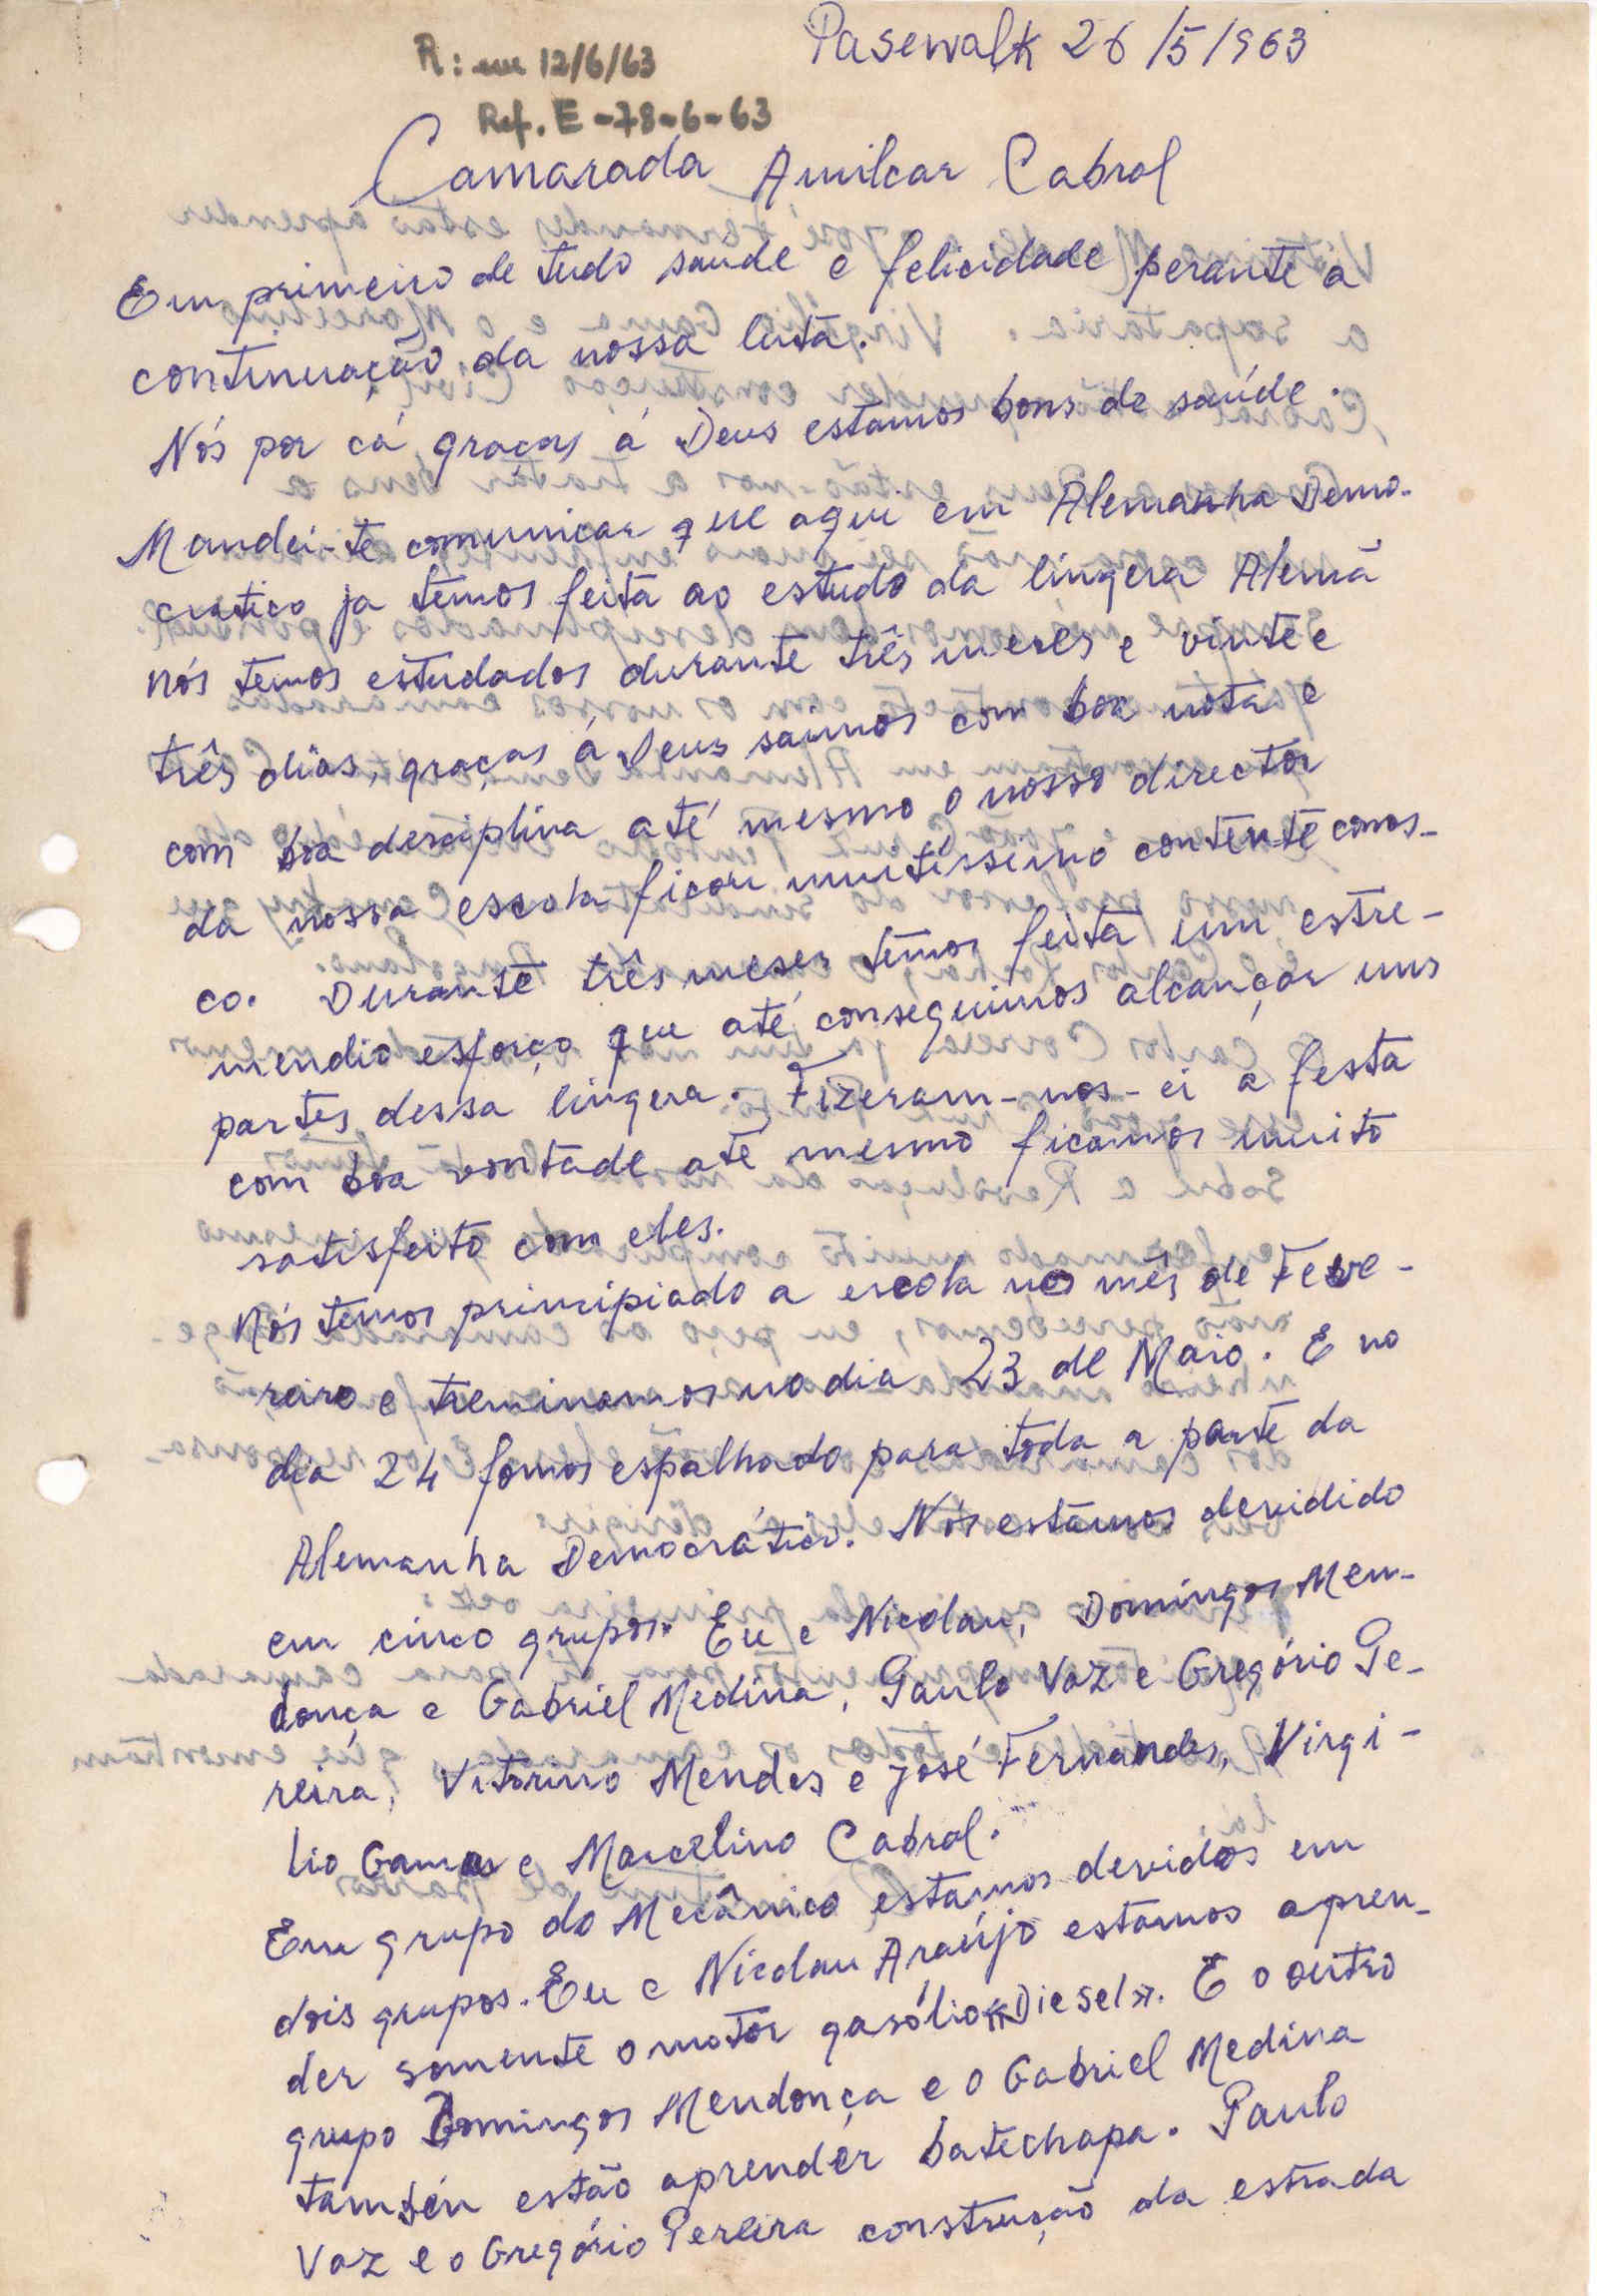 Pasewalk 26/5/1963
R: em 12/6/63
Ref. E-78-6-63
Camarada Amilcar Cabral
Em primeiro de tudo saude e felicidade perante a
continuação da nossa luta.
Nós por cá graças á Deus estamos bons de saúde.
Mandei-te comunicar que aqui em Alemanha Demo-
cratico ja temos feita ao estudo da lingera Alemã
nós temos estudados durante três meses e vinte e
três dias, graças á Deus saimos com boa nota e
com boa desciplina até mesmo o nosso director
da nossa escola ficou muitissimo contente conos-
co. Durante três meses temos feita um estre-
mendio esforço que até conseguimos alcançar uns
partes dessa lingera. Fizeram-nos-ei a festa
com boa vontade até mesmo ficamos muito
satisfeito com eles.
Nós temos principiado a escola no mês de Feve-
reiro e treminamos no dia 23 de Maio. E no
dia 24 fomos espalhado para toda a parte da
Alemanha Democrática. Nós estamos devidido
em cinco grupos. Eu e Nicolau, Domingos Men-
donça e Gabriel Medina, Paulo Vaz e Gregório Pe-
reira, Vitorino Mendes e José Fernandes, Virgi-
lio Gamas e Marcelino Cabral.
Em grupo do Mecânico estamos devidos em
dois grupos. Eu e Nicolau Araújo estamos apren-
der somente o motor gasólio «Diesel». E o outro
grupo Domingos Mendonça e o Gabriel Medina
tambén estão aprender batechapa. Paulo
Vaz e o Gregório Pereira construção da estrada